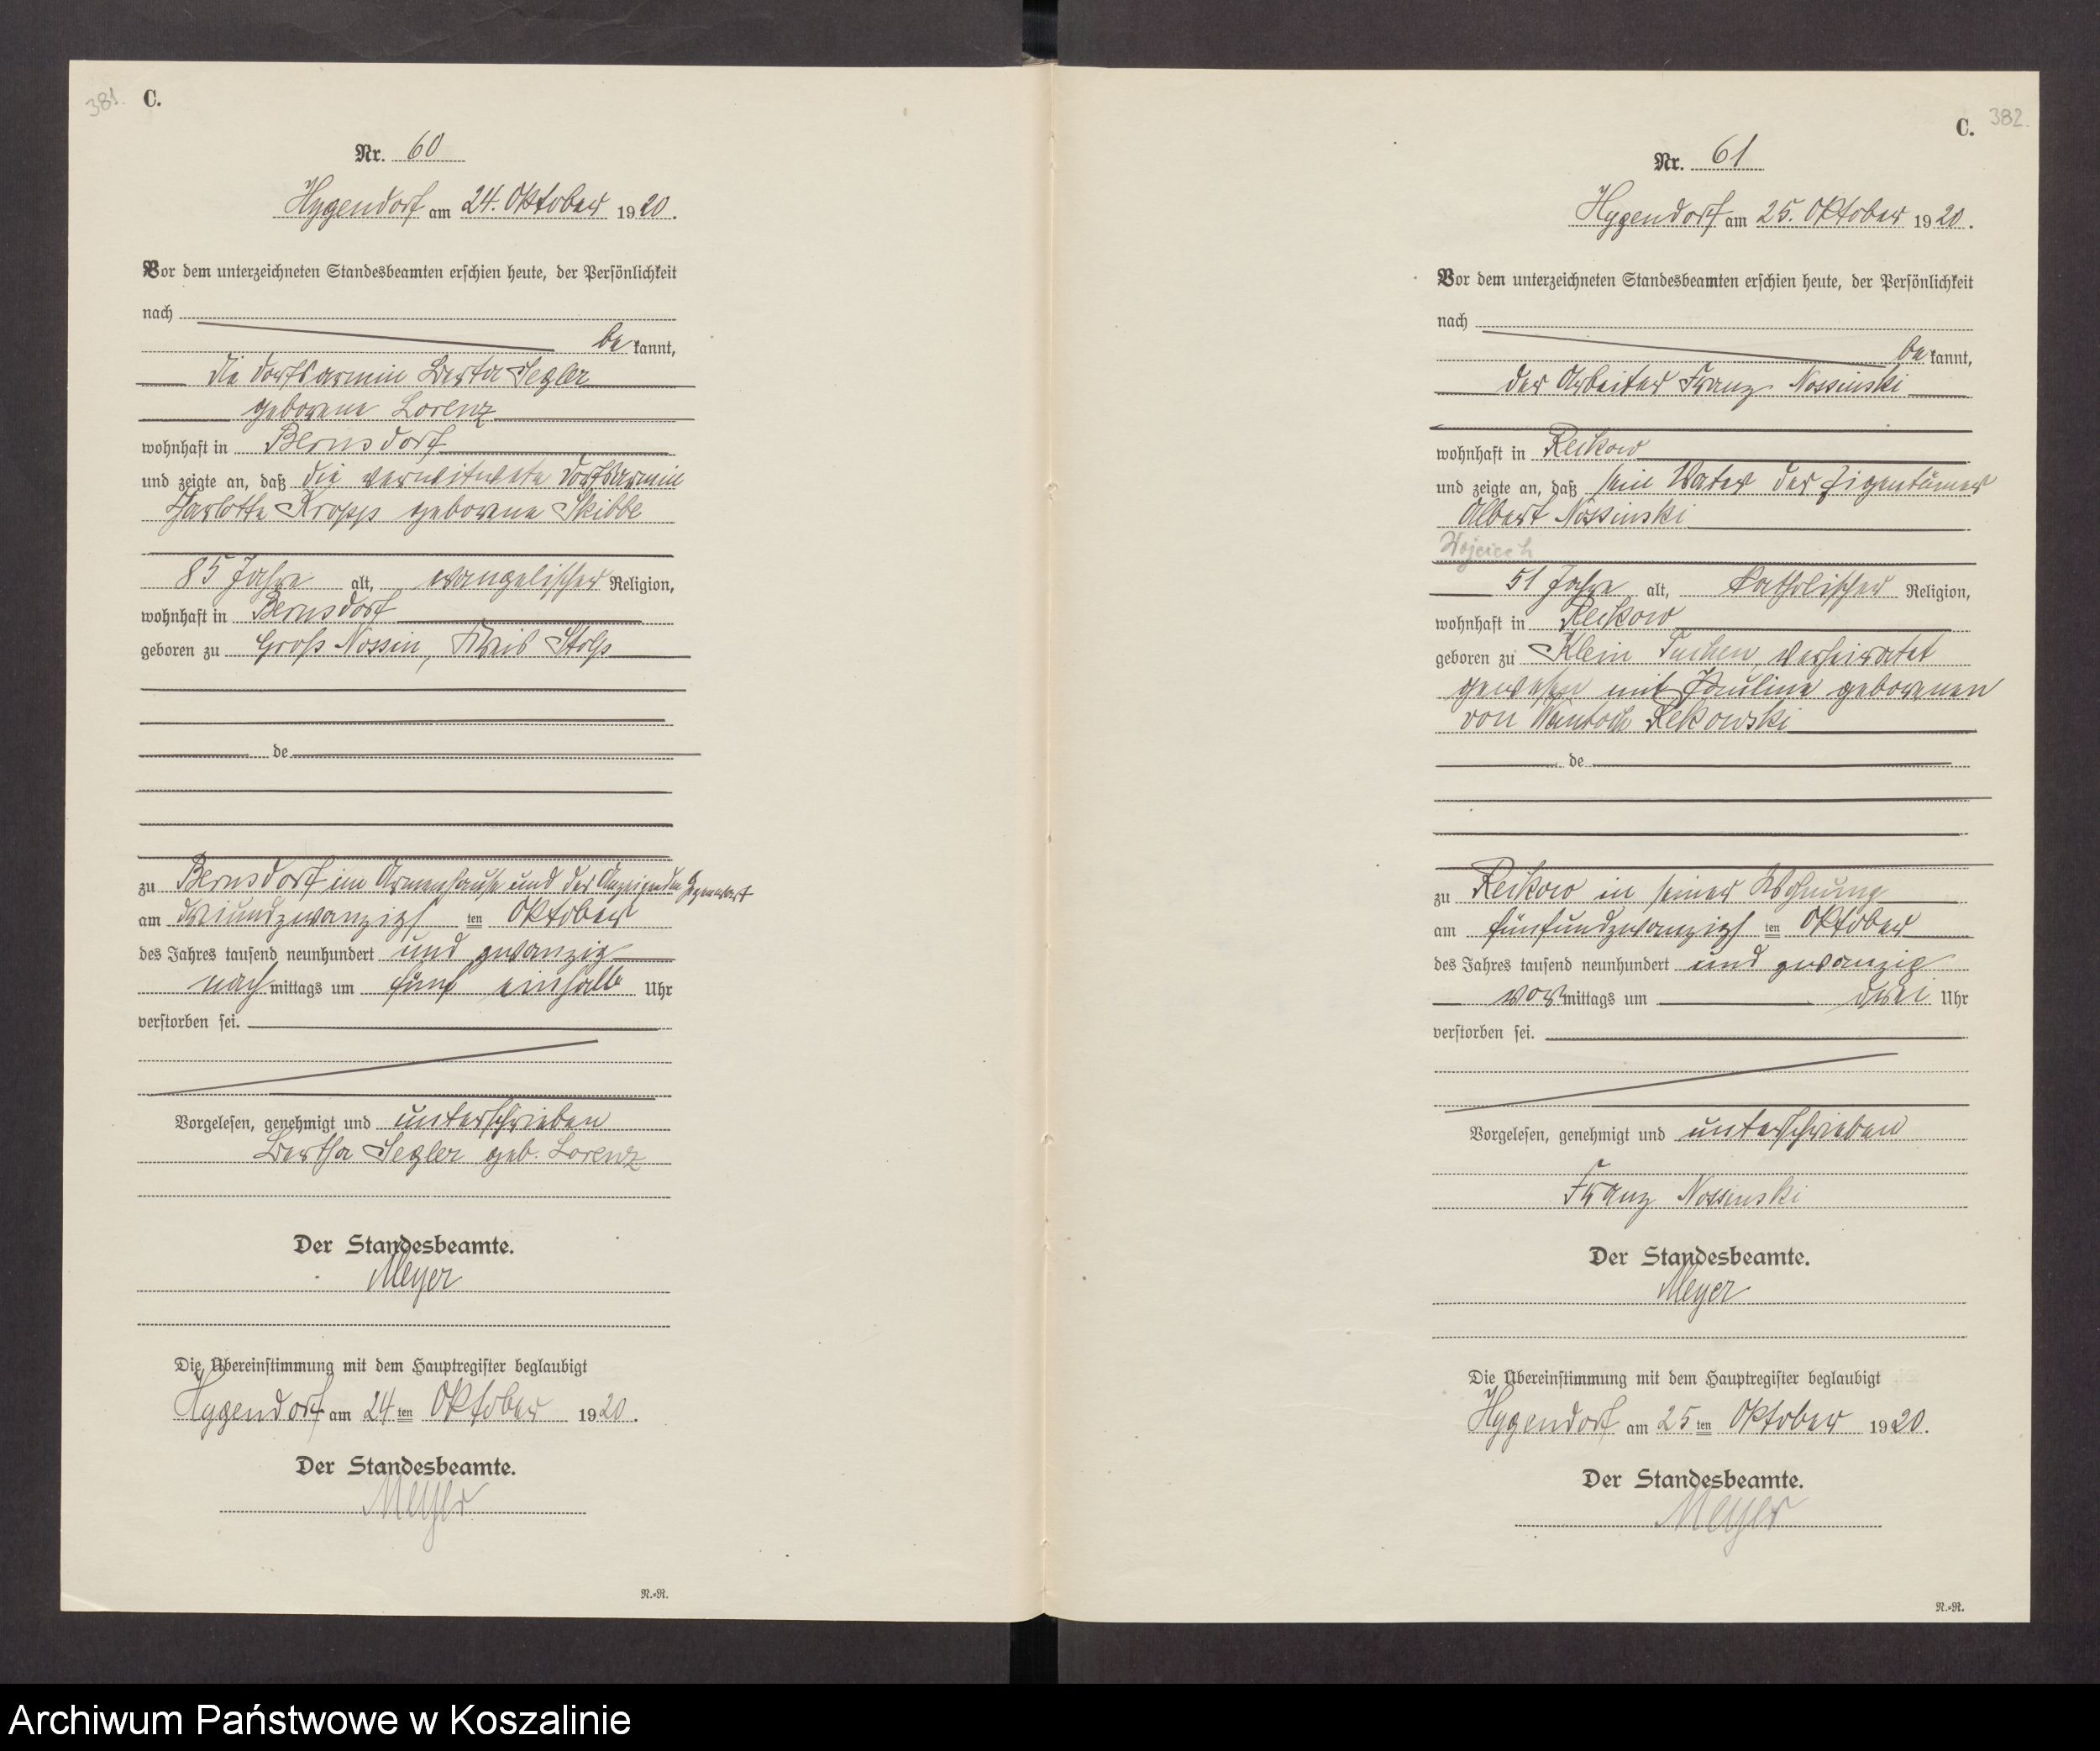 381.
C.
Nr. 60
Hygendorf am 24. Oktober 1920.
Vor dem unterzeichneten Standesbeamten erschien heute, der Persönlichkeit
nach
be kannt,
die Dorfsarmin Berta Segler
geborene Lorenz
wohnhaft in Bernsdorf
und zeigte an, daß die verwitwete Dorfsarmin
Charlotte Kropp geborene Skibbe
85 Jahre alt, evangelischer Religion,
wohnhaft in Bernsdorf
geboren zu Groß Nossin, Kreis Stolp
de
zu Bernsdorf im Armenhause und der Anzeigenden Gegenwart
am dreiundzwanzigs ten Oktober
des Jahres tausend neunhundert und zwanzig
nach mittags um fünf einhalb Uhr
verstorben sei.
Vorgelesen, genehmigt und unterschrieben
Bertha Segler geb. Lorenz
Der Standesbeamte.
Meyer
Die Übereinstimmung mit dem Hauptregister beglaubigt
Hygendorf am 24 ten Oktober 1920.
Der Standesbeamte.
Meyer
R.-R.
C. 382.
Nr. 61
Hygendorf am 25. Oktober 1920.
Vor dem unterzeichneten Standesbeamten erschien heute, der Persönlichkeit
nach
be kannt,
der Arbeiter Franz Nossinski
wohnhaft in Reckow
und zeigte an, daß sein Vater der Eigentümer
Albert Nossinski
Wojciech
51 Jahre alt, katholischer Religion,
wohnhaft in Reckow
geboren zu Klein Tuchen, verheiratet
gewesen mit Pauline geborenen
von Wantoch Rekowski
de
zu Reckow in seiner Wohnung
am fünfundzwanzigs ten Oktober
des Jahres tausend neunhundert und zwanzig
vor mittags um drei Uhr
verstorben sei.
Vorgelesen, genehmigt und unterschrieben
Franz Nossinski
Der Standesbeamte.
Meyer
Die Übereinstimmung mit dem Hauptregister beglaubigt
Hygendorf am 25 ten Oktober 1920.
Der Standesbeamte.
Meyer
R.-R.
Archiwum Państwowe w Koszalinie